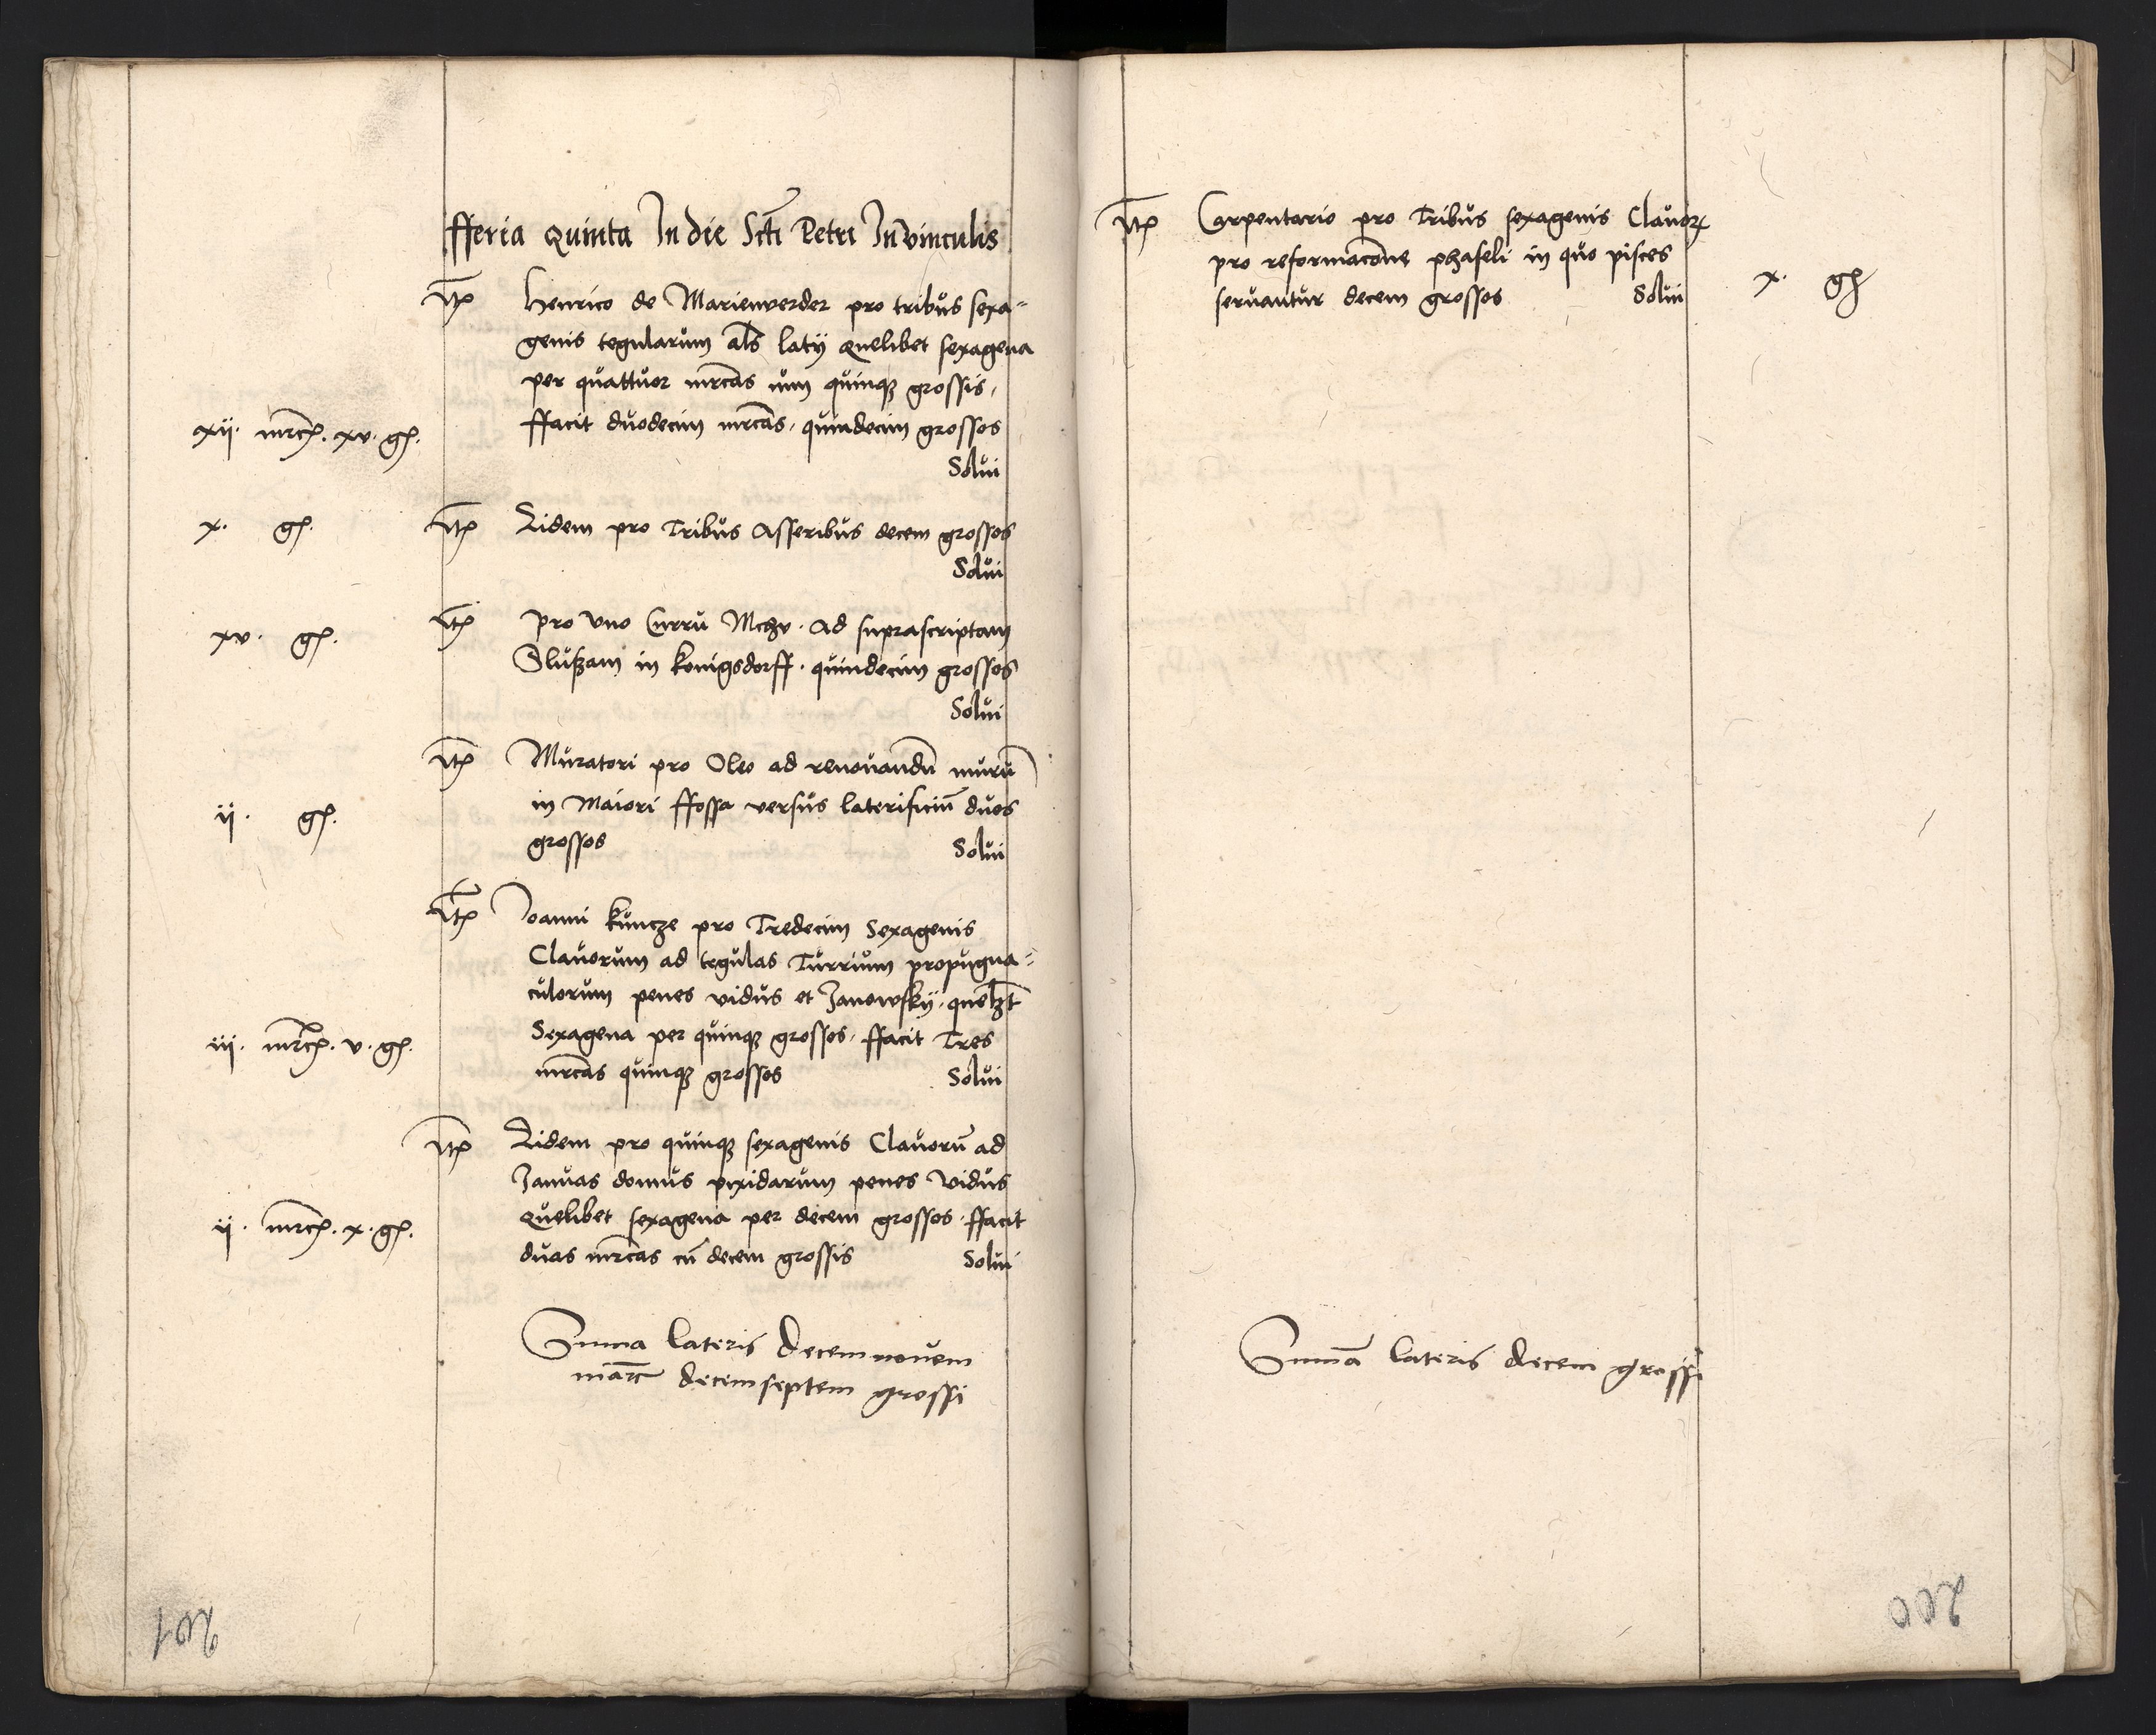 fferia quinta In die Scti Petri In vinculis
Itm Henrico de Marienverder pro tribus sexa=
genis tegularum als laty quelibet sexagena
per quattuor mrcas cum quinque grossis,
xii. mrc. xv. gs. ffacit duodecim mrcas, quindecim grossos
Solui
x. gs. Itm Eidem pro Tribus Asseribus decem grossos
Solui
Itm pro Uno Curru Mchv. ad suprascriptam
xv. gs. Slußam in Konigsdorff. quindecim grossos
Solui
Itm Muratori pro Oleo ad renouandu muru
ii. gs. in Maiori ffossa versus laterificiu duos
grossos Solui
Itm Joanni Kuncze pro Tredecim Sexagenis
Clauorum ad tegulas Turrium propugna=
culorum penes vidus et Janowsky. quelzt
iii. mrc. v. gs. Sexagena per quinque grossos. ffacit Tres
mrcas quinque grossos Solui
Itm Eidem pro quinque sexagenis Clauoru ad
Januas domus pixidarum penes Vidus
ii. mrc. x. gs. quelibet sexagena per decem grossos. ffacit
duas mrcas cu decem grossis Solui
Suma lateris Decemnouem
marc decemseptem grossi
201
Itm Carpentario pro Tribus sexagenis Clauoꝝ
pro reformacone phaseli in quo pisces
seruantur decem grossos Solui x. gs
Suma lateris decem grossi
200